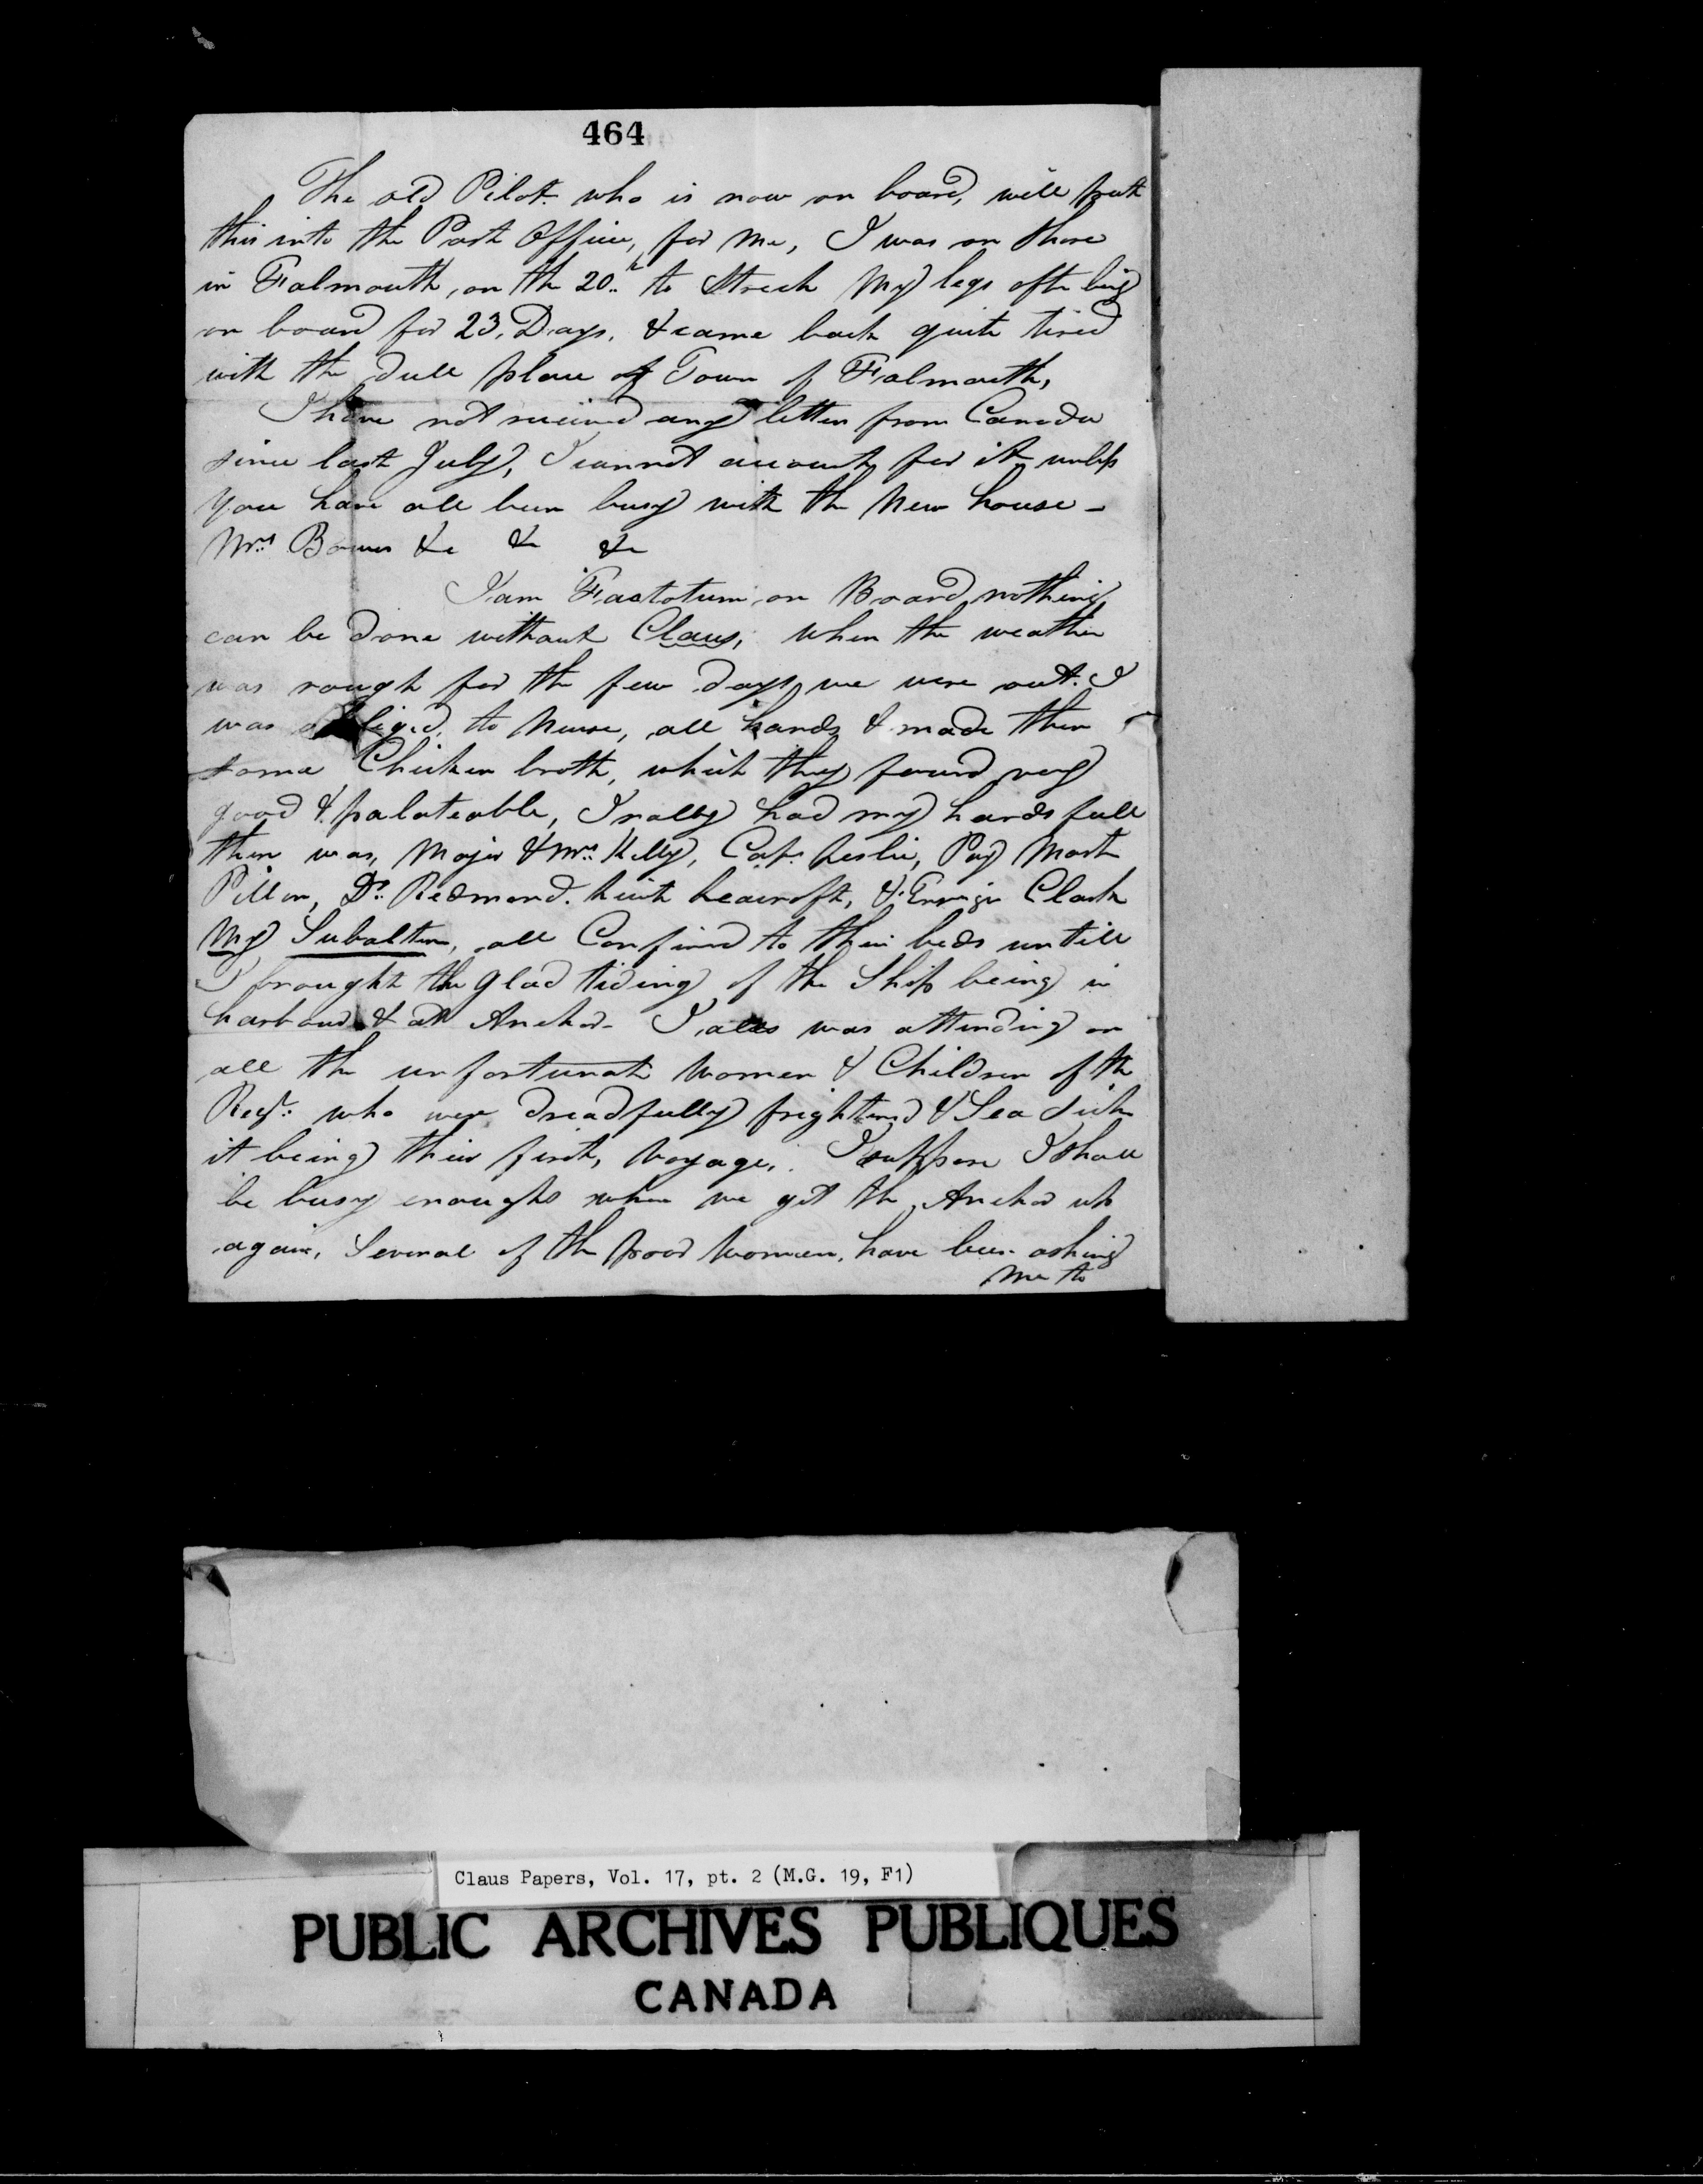 464
The old Pilot who is now on board, will put
this into the Post Office, for me, I was on Shore
in Falmouth, on the 20th to Strech My legs after being
on board for 23, Days, & came back quite tired
with the dull place of Town of Falmouth,
I have not received any letters from Canada
since last July, I cannot account for it unless
you have all been busy with the New house -
Mrs Bowers &c & &c
I am Factotum on Board, nothing
can be done without Claus, when the weather
was rough for the few days we were out. I
was obliged to Nurse, all hands & made them
some Chicken broth, which they found very
good & palateable, I really had my hands full
there was, Major & Mrs Kelly, Capt Leslie, Pay Mast
Pillon, Dr Redmond. Lieut Leacroft, & Ensign Clark
My Subaltern, all Confined to their beds untill
I brought the glad tiding of the Ship being in
harbour & at Anchor - I also was attending on
all the unfortunate Women & Children of the
Regt who were dreadfully frightened & Sea Sick
it being their first, Voyage. I suppose I shall
be busy enough when we get the Anchor up
again, Several of the poor Women, have been asking
me to
Claus Papers, Vol. 17, pt. 2 (M.G. 19, F1)
PUBLIC ARCHIVES PUBLIQUES
CANADA